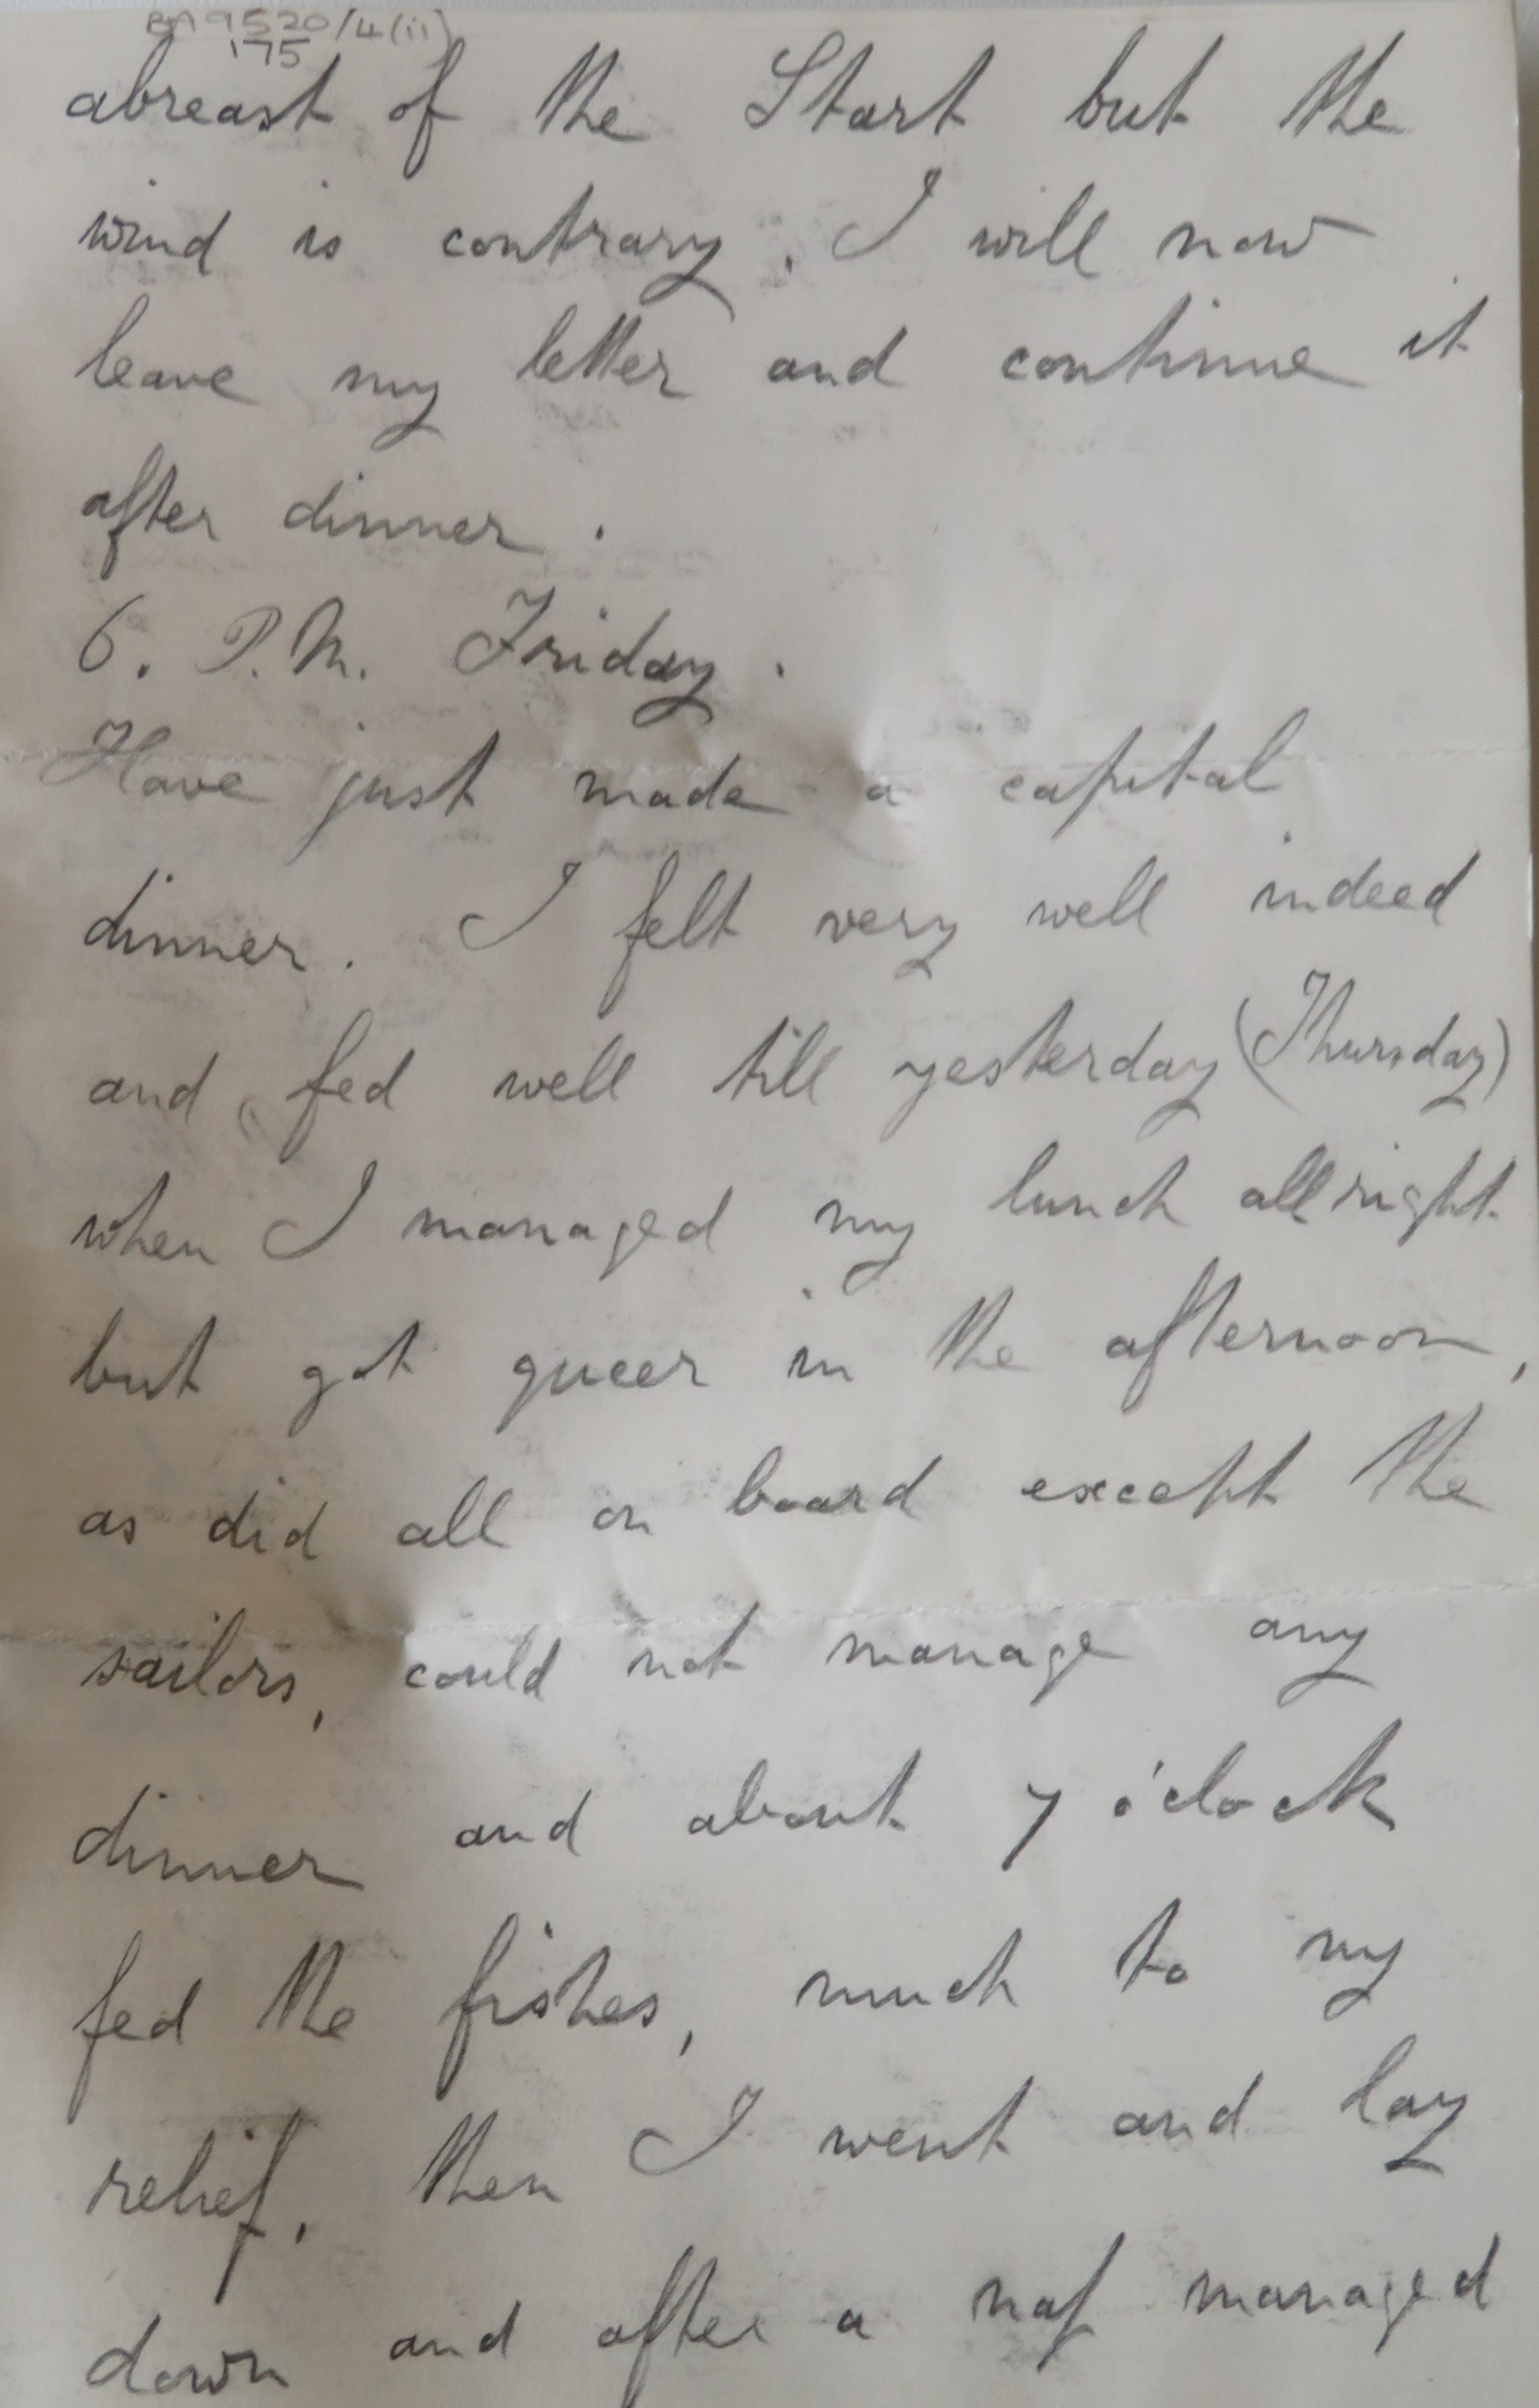 BA9520/4(ii)
175
abreast of the Start but the
wind is contrary. I will now
leave my letter and continue it
after dinner.
6. P.M. Friday.
Have just made a capital
dinner. I felt very well indeed
and fed well till yesterday (Thursday)
when I managed my lunch all right
but got queer in the afternoon,
as did all on board except the
sailors, could not manage any
dinner and about 7 o'clock
fed the fishes, much to my
relief, then I went and lay
down and after a nap managed